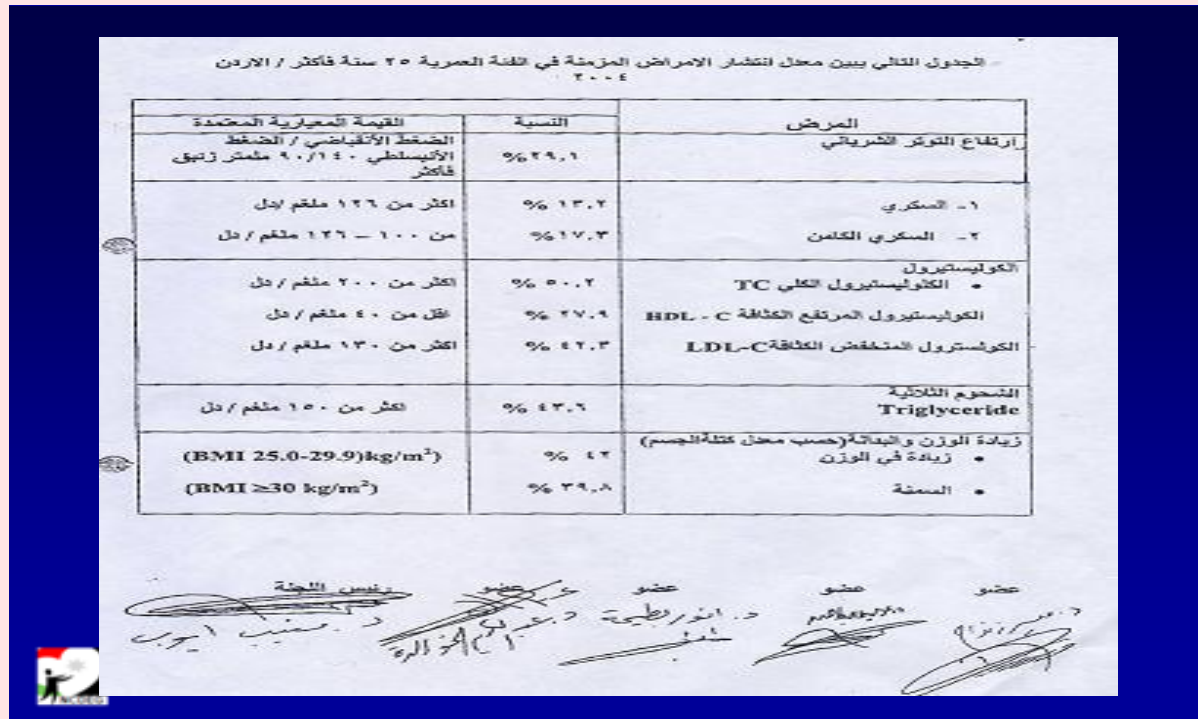 الجدول التالي يبين معدل انتشار الامراض المزمنة في الفئة العمرية ٢٥ سنة فأكثر / الاردن
٢٠٠٤
المرض النسبة القيمة المعيارية المعتمدة
إرتفاع التوتر الشرياني %٢٩,١ الضغط الأنقباضي / الضغط
الأنبساطي ٩٠/١٤٠ ملمتر زئبق
فأكثر
١- السكري % ١٣,٢ اكثر من ١٢٦ ملغم /دل
٢- السكري الكامن %١٧,٣ من ١٠٠ – ١٢٦ ملغم / دل
الكوليستيرول
• الكلوليستيرول الكلي TC % ٥٠,٢ اكثر من ٢٠٠ ملغم / دل
الكوليستيرول المرتفع الكثافة HDL - C % ٢٧,٩ اقل من ٤٠ ملغم / دل
الكولسترول المنخفض الكثافة LDL-C % ٤٢,٣ اكثر من ١٣٠ ملغم / دل
الشحوم الثلاثية
Triglyceride % ٤٣,٦ اكثر من ١٥٠ ملغم / دل
زيادة الوزن والبدانة(حسب معدل كتلة الجسم)
• زيادة في الوزن % ٤٢ (BMI 25.0-29.9)kg/m²)
• السمنة % ٣٩,٨ (BMI ≥30 kg/m²)
عضو عضو عضو عضو رئيس اللجنة
د. انور د.
NCDEG